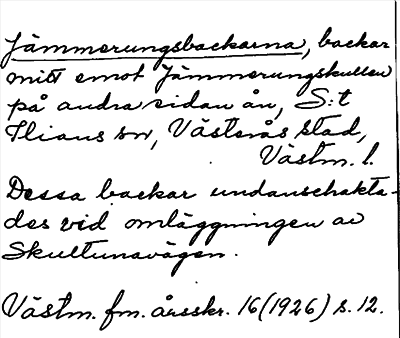 Jämmerungsbackarna, backar
mitt emot Jämmerungskullen
på andra sidan ån, S:t
Ilians sn, Västerås stad,
Västm. l.
Dessa backar undanschakta-
des vid omläggningen av
Skultunavägen.
Västm. fm. årsskr. 16 (1926) s. 12.